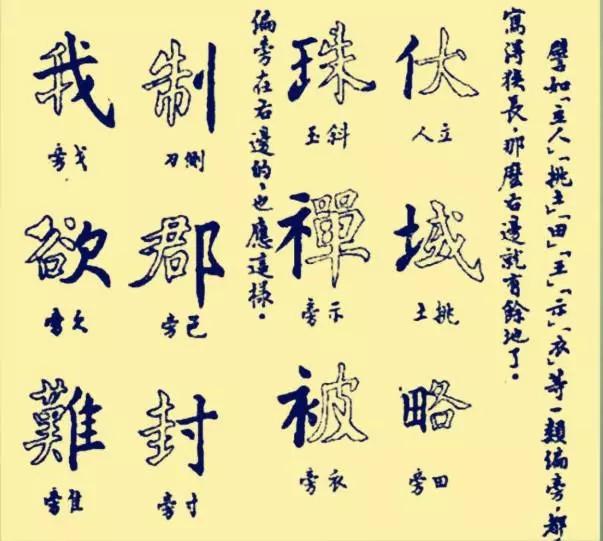 譬如「立人」「挑土」「田」「王」「示」「衣」等一類偏旁，都
寫得狹長，那麼右邊就有餘地了。
伏
立人
域
挑土
略
田旁
珠
斜玉
禪
示旁
被
衣旁
偏旁在右邊的，也應這樣。
制
側刀
郡
邑旁
封
寸旁
我
戈旁
欲
欠旁
難
隹旁